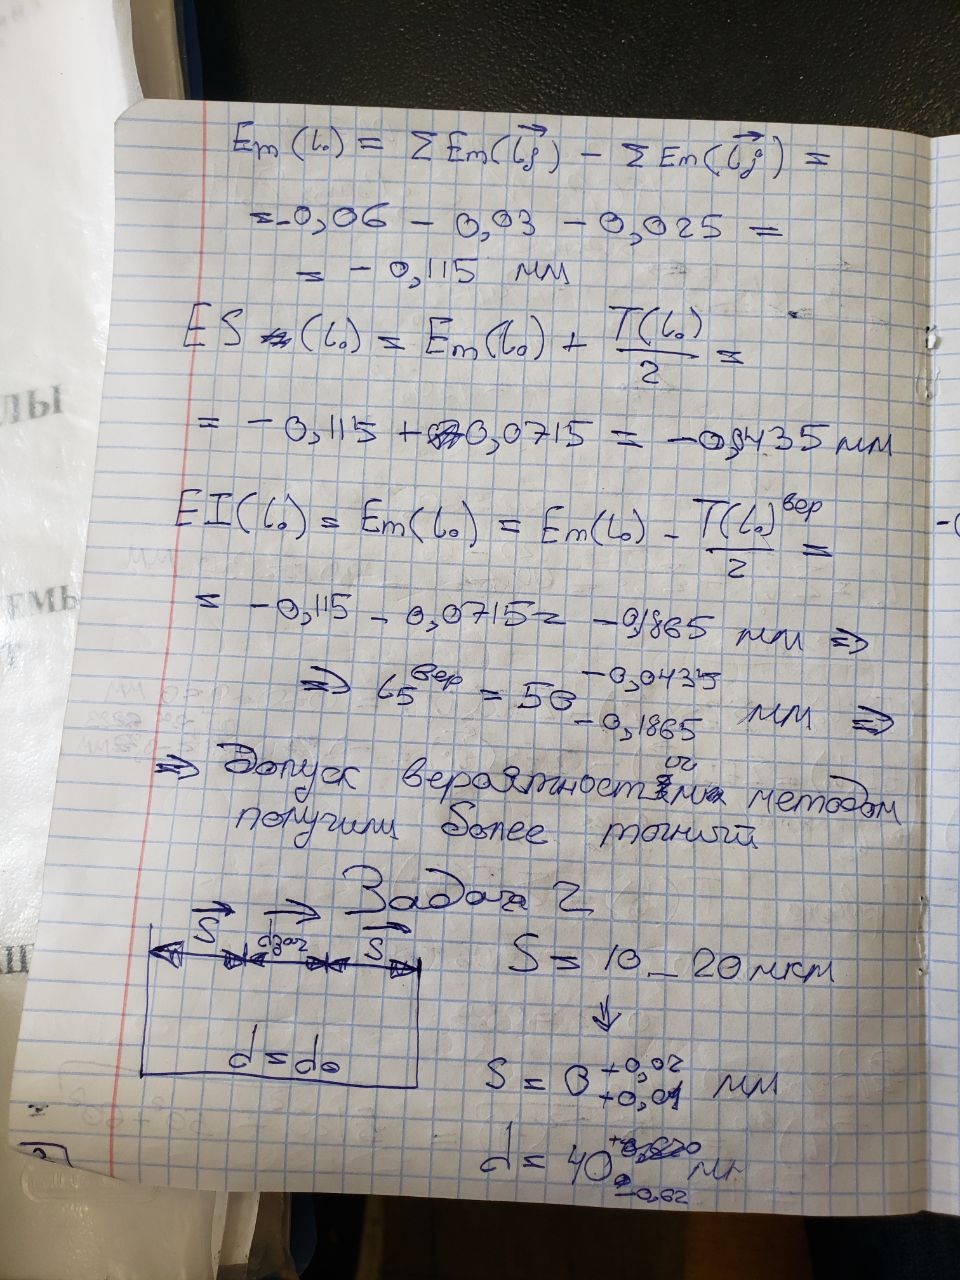 Em(l₀) = ΣEm(l⃗j) − ΣEm(l⃗j) =
= -0,06 − 0,03 − 0,025 =
= − 0,115 мм
ES (l₀) = Em(l₀) + T(l₀)/2 =
= − 0,115 + 0,0715 = −0,0435 мм
EI(l₀) = Em(l₀) = Em(l₀) − T(l₀)вер/2 =
= −0,115 − 0,0715 = −0,1865 мм ⇒
⇒ l5 вер = 50 −0,0435 −0,1865 мм ⇒
⇒ Допуск вероятностным методом
получили более точный
Задача 2
S⃗ dзаг S⃗
S = 10 – 20 мкм
↓
d = d₀
S = 0 +0,02 +0,01 мм
d = 40 −0,62
ЛЫ
ЕМЫ
Т